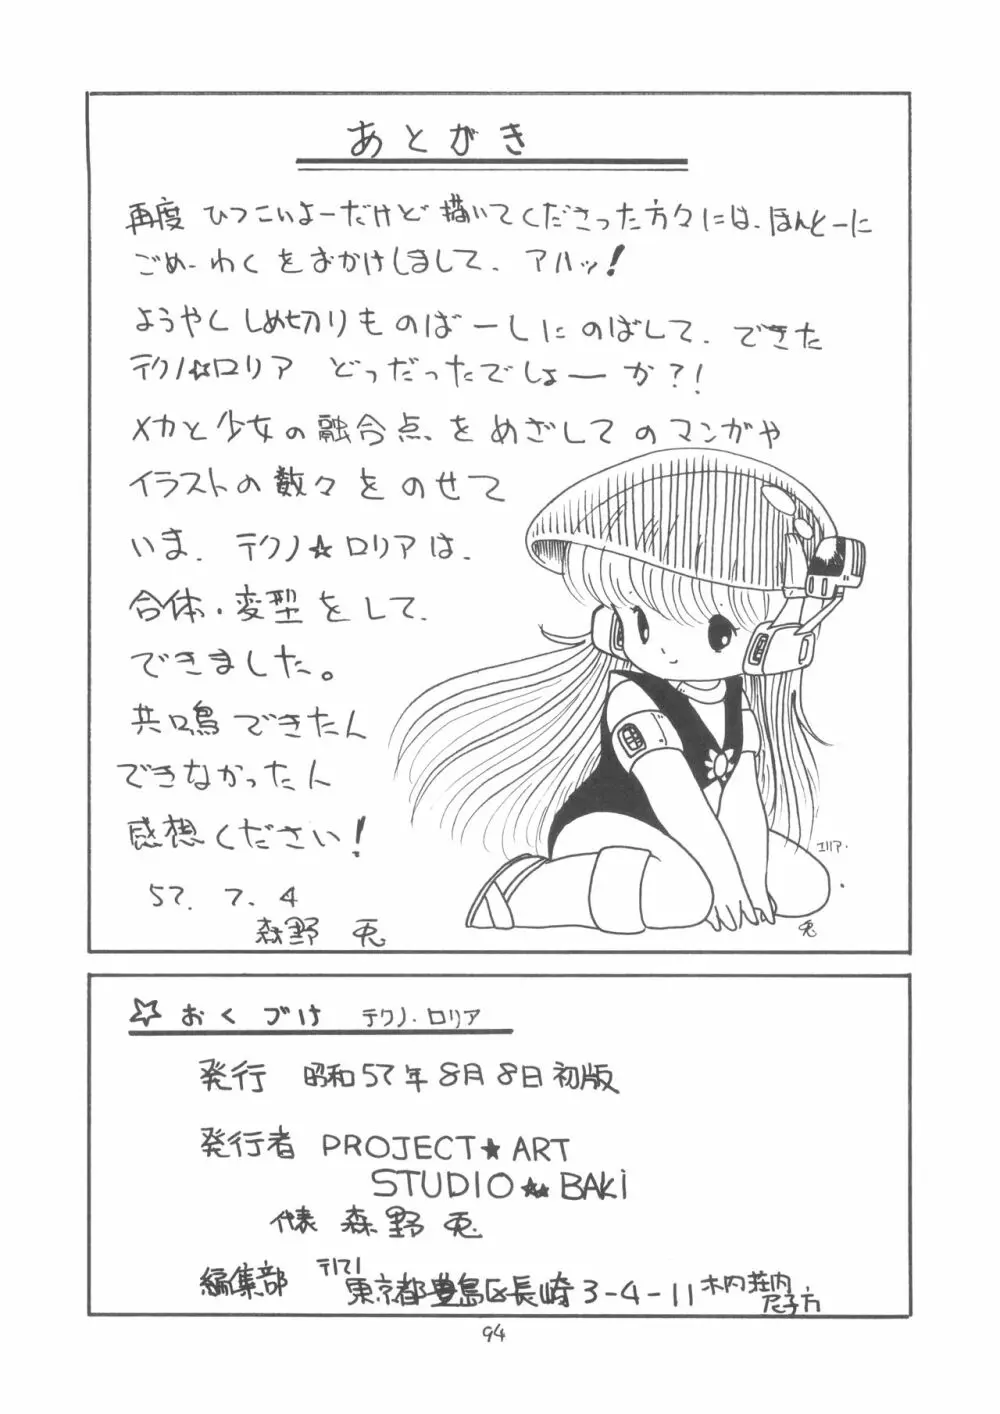 あとがき
再度 ひつこいよーだけど 描いてくださった方々には、ほんとーに
ごめーわくをおかけしまして、アハッ!
ようやくしめ切りものばーしにのばして、できた
テクノ☆ロリア どっだったでしょーか?!
メカと少女の融合点をめざしてのマンガや
イラストの数々をのせて
いま、テクノ☆ロリアは、
合体・変型をして、
できました。
共鳴できたん
できなかったん
感想ください!
57.7.4
森野 兎
エリア・
兎
☆おくづけ テクノ・ロリア
発行 昭和57年8月8日初版
発行者 PROJECT★ART
STUDIO★★BAKi
代表 森野 兎
編集部 〒171 東京都豊島区長崎3-4-11木内荘内
尼子方
94